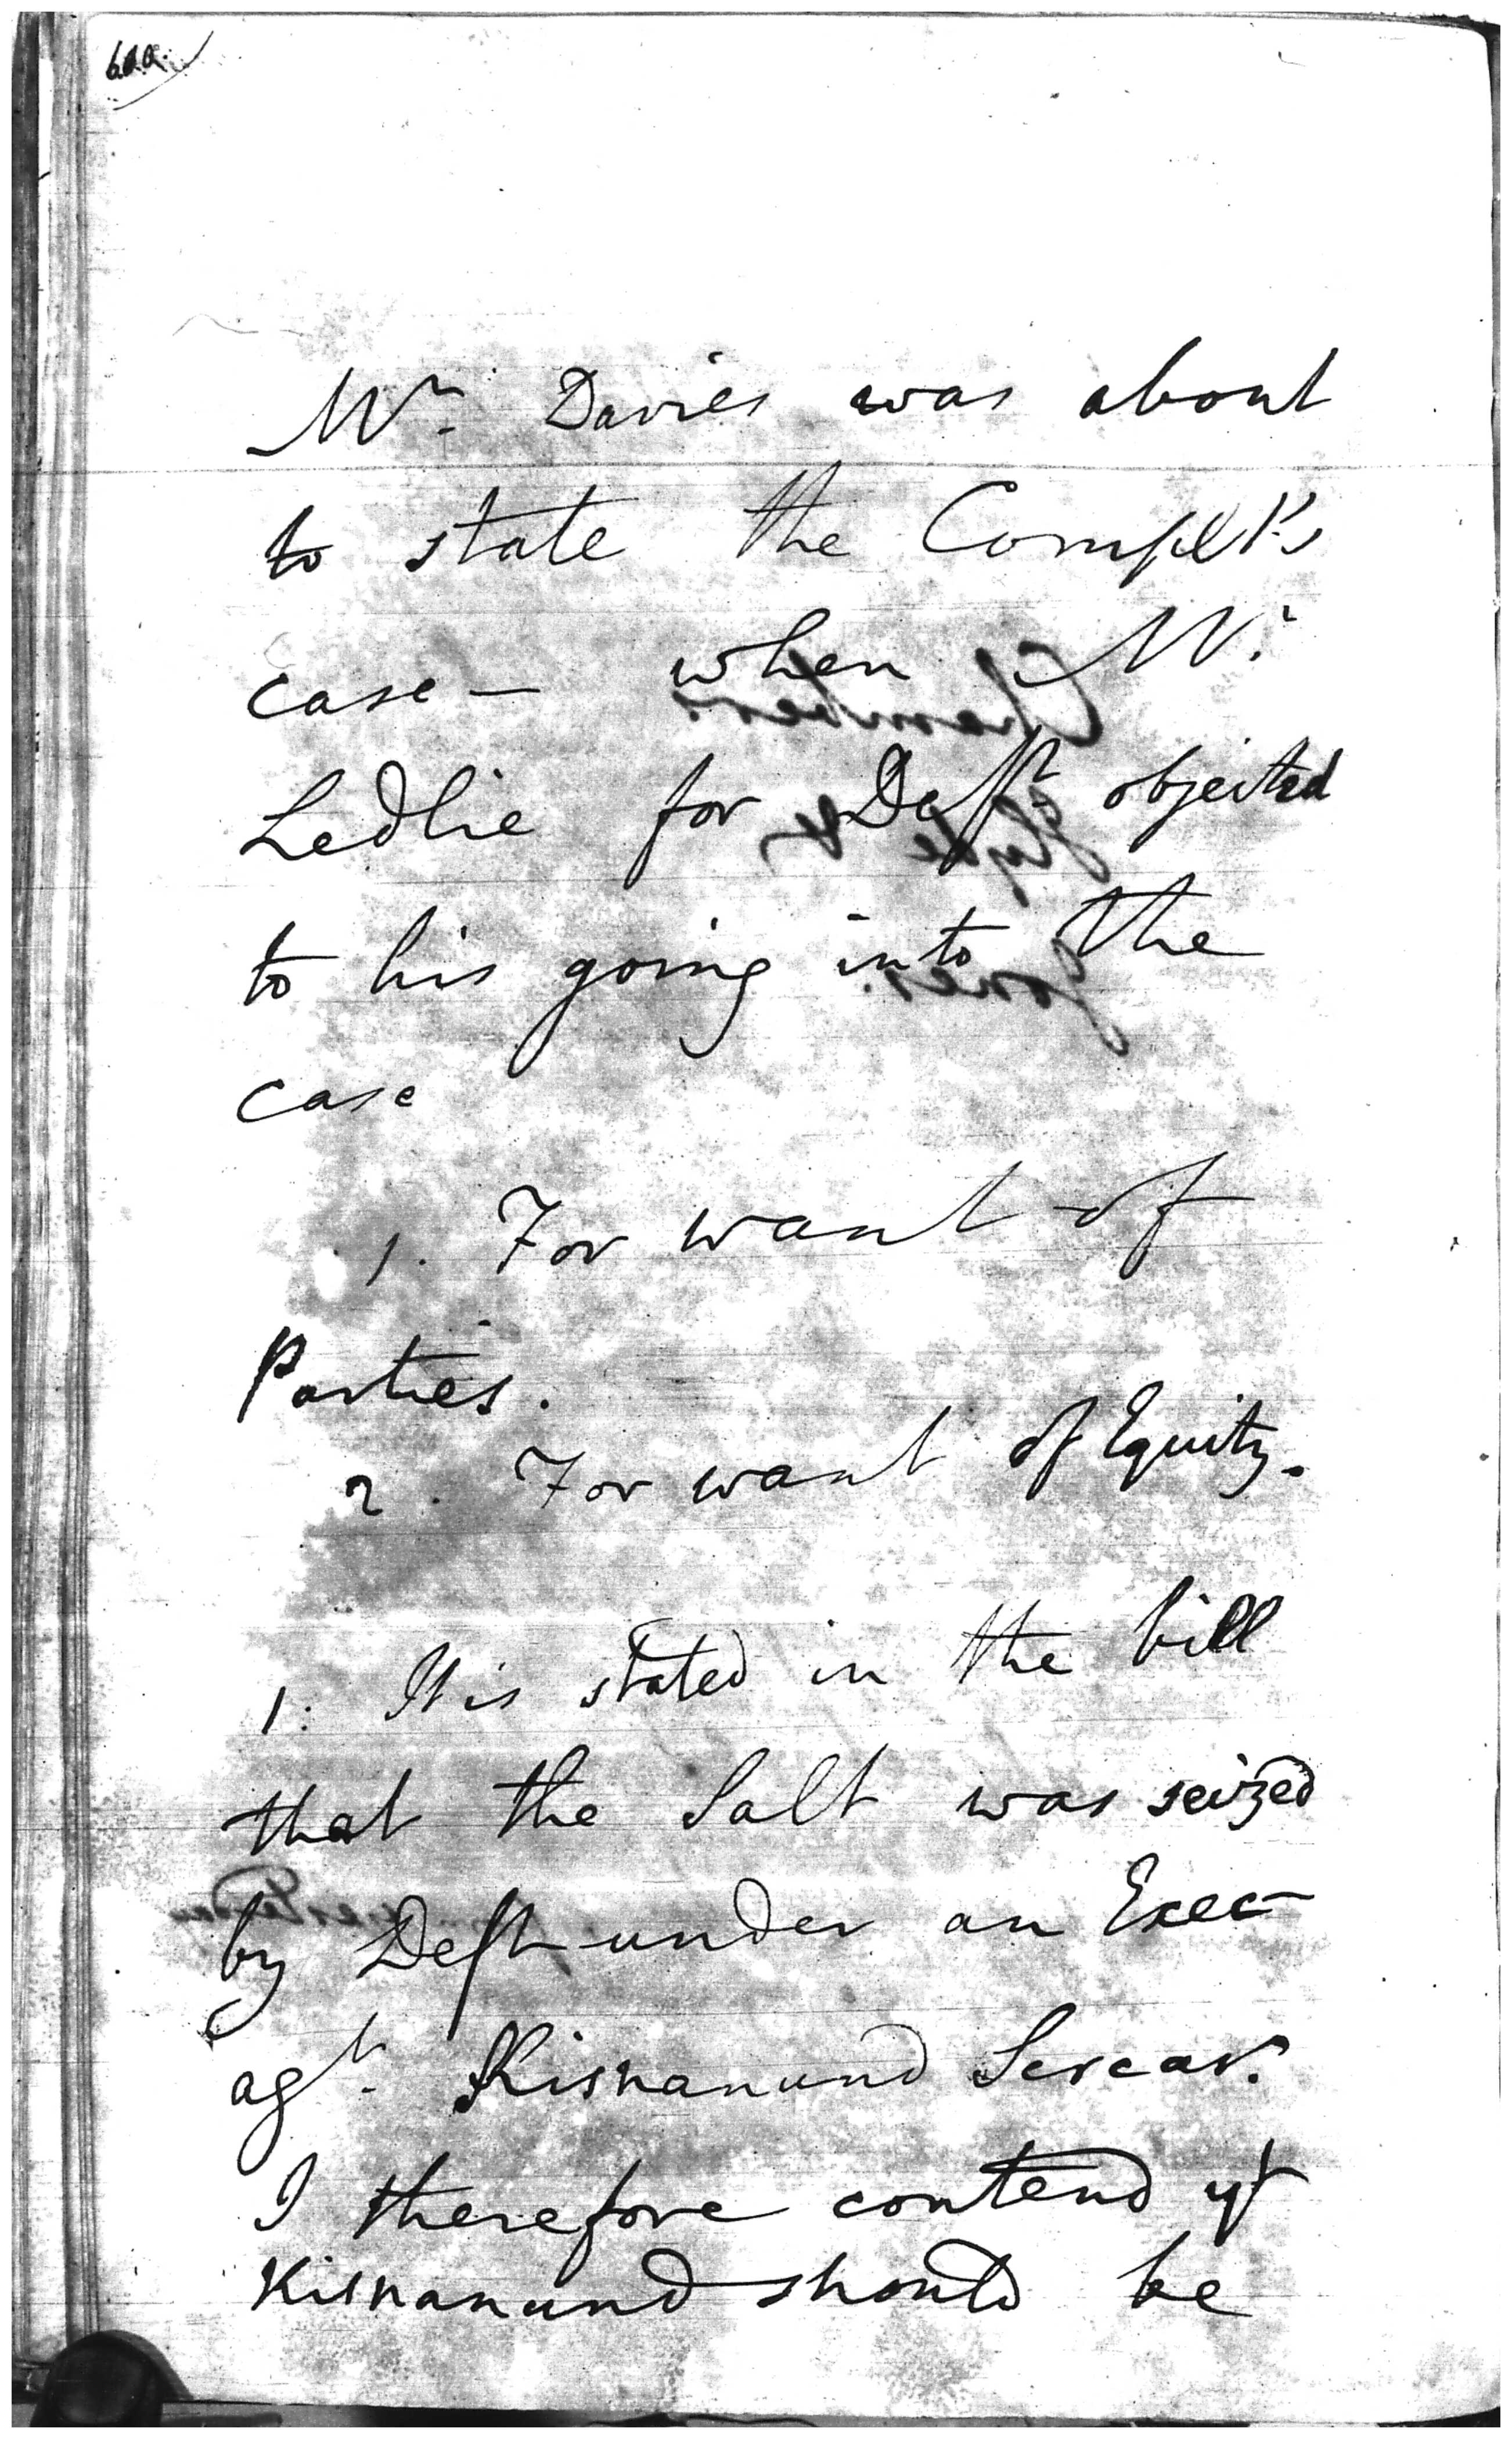 Mr. Davies was about
to state the Complt's
case — when Mr.
Ledlie for Deft objected
to his going into the
case
1. For want of
Parties.
2. For want of Equity.
1. It is stated in the bill
that the Salt was seized
by Deft under an Exec—
agt. Kisnanund Sercar.
I therefore contend yt
Kisnanund should be